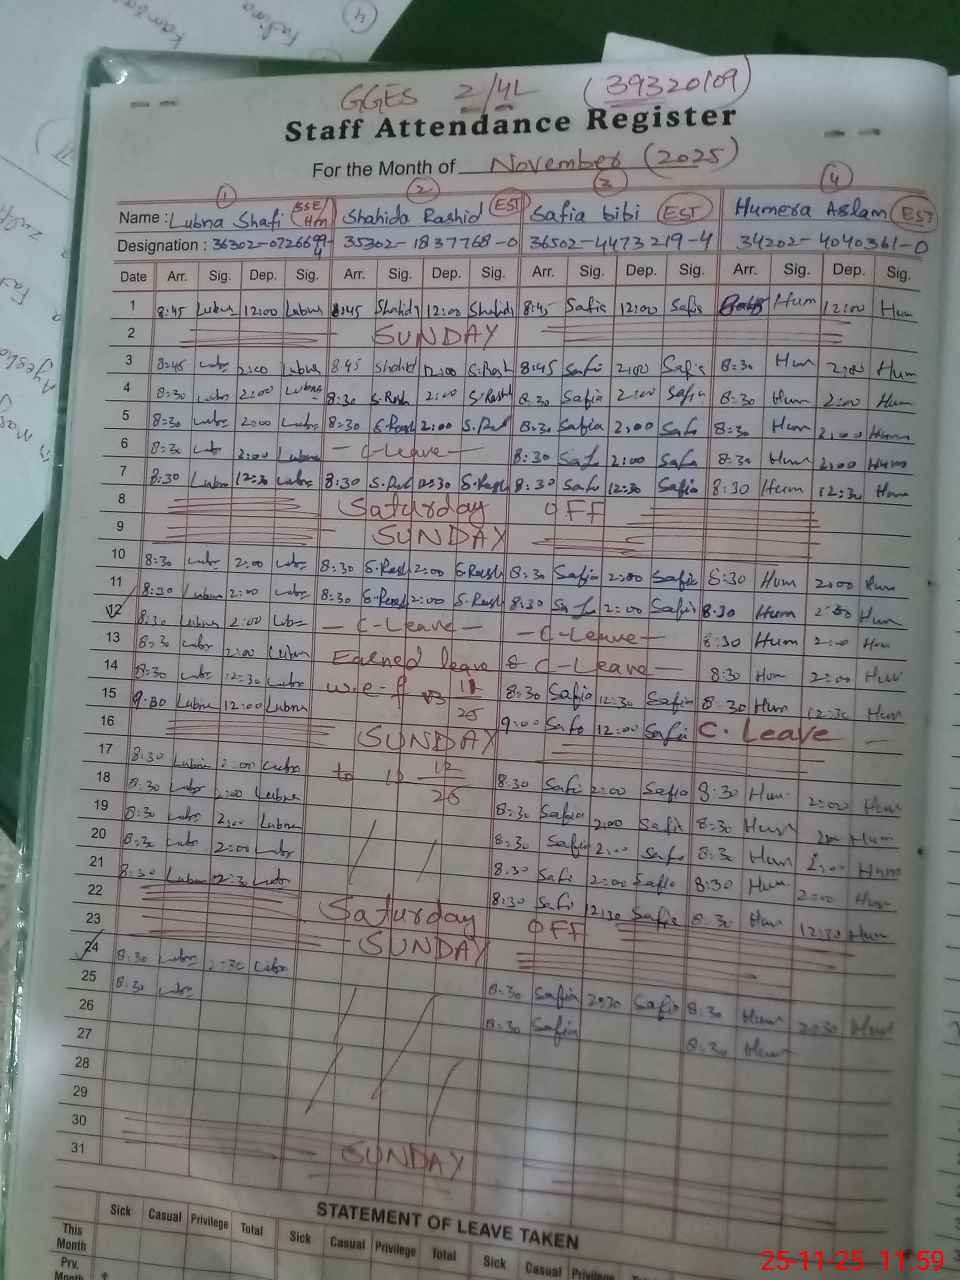 GGES 2/4L (39320109)
Staff Attendance Register
For the Month of November (2025)
1 2 3 4
Name : Lubna Shafi SSE/Hm Shahida Rashid EST Safia bibi EST Humera Aslam EST
Designation : 36302-0726699-4 35302-1837768-0 36502-4473219-4 34202-4040361-0
Date Arr. Sig. Dep. Sig. Arr. Sig. Dep. Sig. Arr. Sig. Dep. Sig. Arr. Sig. Dep. Sig.
1 8:45 Lubna 12:00 Lubna 8:45 Shahida 12:00 Shahida 8:45 Safia 12:00 Safia Hum 12:00 Hum
2 SUNDAY
3 8:45 Lubn 2:00 Lubna 8:45 Shahid 2:00 S.Rash 8:45 Safi 2:00 Safia 8:30 Hum 2:00 Hum
4 8:30 Lubn 2:00 Lubna 8:30 S.Rash 2:00 S.Rash 8:30 Safia 2:00 Safia 8:30 Hum 2:00 Hum
5 8:30 Lubn 2:00 Lubn 8:30 S.Rash 2:00 S.Ras 8:30 Safia 2:00 Safi 8:30 Hum 2:00 Hum
6 8:30 Lub 2:00 Lubna - C-Leave - 8:30 Safi 2:00 Safi 8:30 Hum 2:00 Hum
7 8:30 Lubna 12:30 Lubn 8:30 S.Rash 12:30 S.Rash 8:30 Safi 12:30 Safia 8:30 Hum 12:30 Hum
8 Saturday OFF
9 SUNDAY
10 8:30 Lubn 2:00 Lubn 8:30 S.Rash 2:00 S.Rash 8:30 Safia 2:00 Safia 8:30 Hum 2:00 Hum
11 8:30 Lubna 2:00 Lubn 8:30 S.Rash 2:00 S.Rash 8:30 Safi 2:00 Safia 8:30 Hum 2:00 Hum
12 8:30 Lubna 2:00 Lubn - C-Leave - - C-Leave - 8:30 Hum 2:00 Hum
13 8:30 Lubn 2:00 Lubna Earned leave C-Leave - 8:30 Hum 2:00 Hum
14 8:30 Lubn 12:30 Lubn w.e.f 13 11/25 8:30 Safia 12:30 Safia 8:30 Hum 12:30 Hum
15 9:00 Lubna 12:00 Lubna 9:00 Safi 12:00 Safia C. Leave -
16 SUNDAY
17 8:30 Lubna 2:00 Lubn to 12/25 8:30 Safi 2:00 Safia 8:30 Hum 2:00 Hum
18 8:30 Lubn 2:00 Lubna 8:30 Safia 2:00 Safia 8:30 Hum 2:00 Hum
19 8:30 Lubn 2:00 Lubna 8:30 Safi 2:00 Safi 8:30 Hum 2:00 Hum
20 8:30 Lubn 2:00 Lubn 8:30 Safi 2:00 Safia 8:30 Hum 2:00 Hum
21 8:30 Lubna 12:30 Lubn 8:30 Safi 12:30 Safia 8:30 Hum 12:30 Hum
22 Saturday OFF
23 SUNDAY
24 8:30 Lubn 2:30 Lubn 8:30 Safia 2:30 Safia 8:30 Hum 2:30 Hum
25 8:30 Lubn 8:30 Safia 8:30 Hum
26
27
28
29
30 SUNDAY
31
STATEMENT OF LEAVE TAKEN
Sick Casual Privilege Total Sick Casual Privilege Total Sick Casual Privilege
This Month
Prv. Month
25-11-25 11:59